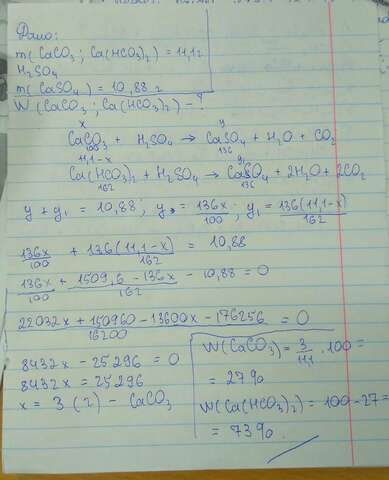 Дано:
m(CaCO₃; Ca(HCO₃)₂) = 11,1г
H₂SO₄
m(CaSO₄) = 10,88г
W(CaCO₃; Ca(HCO₃)₂) - ?
x y
CaCO₃ + H₂SO₄ → CaSO₄ + H₂O + CO₂
100 136
11,1-x y₁
Ca(HCO₃)₂ + H₂SO₄ → CaSO₄ + 2H₂O + 2CO₂
162 136
y + y₁ = 10,88; y = 136x/100; y₁ = 136(11,1-x)/162
136x/100 + 136(11,1-x)/162 = 10,88
136x/100 + 1509,6 - 136x/162 - 10,88 = 0
22032x + 150960 - 13600x - 176256/16200 = 0
8432x - 25296 = 0
8432x = 25296
x = 3 (г) - CaCO₃
W(CaCO₃) = 3/11,1 · 100 =
= 27%
W(Ca(HCO₃)₂) = 100 - 27 =
= 73%.